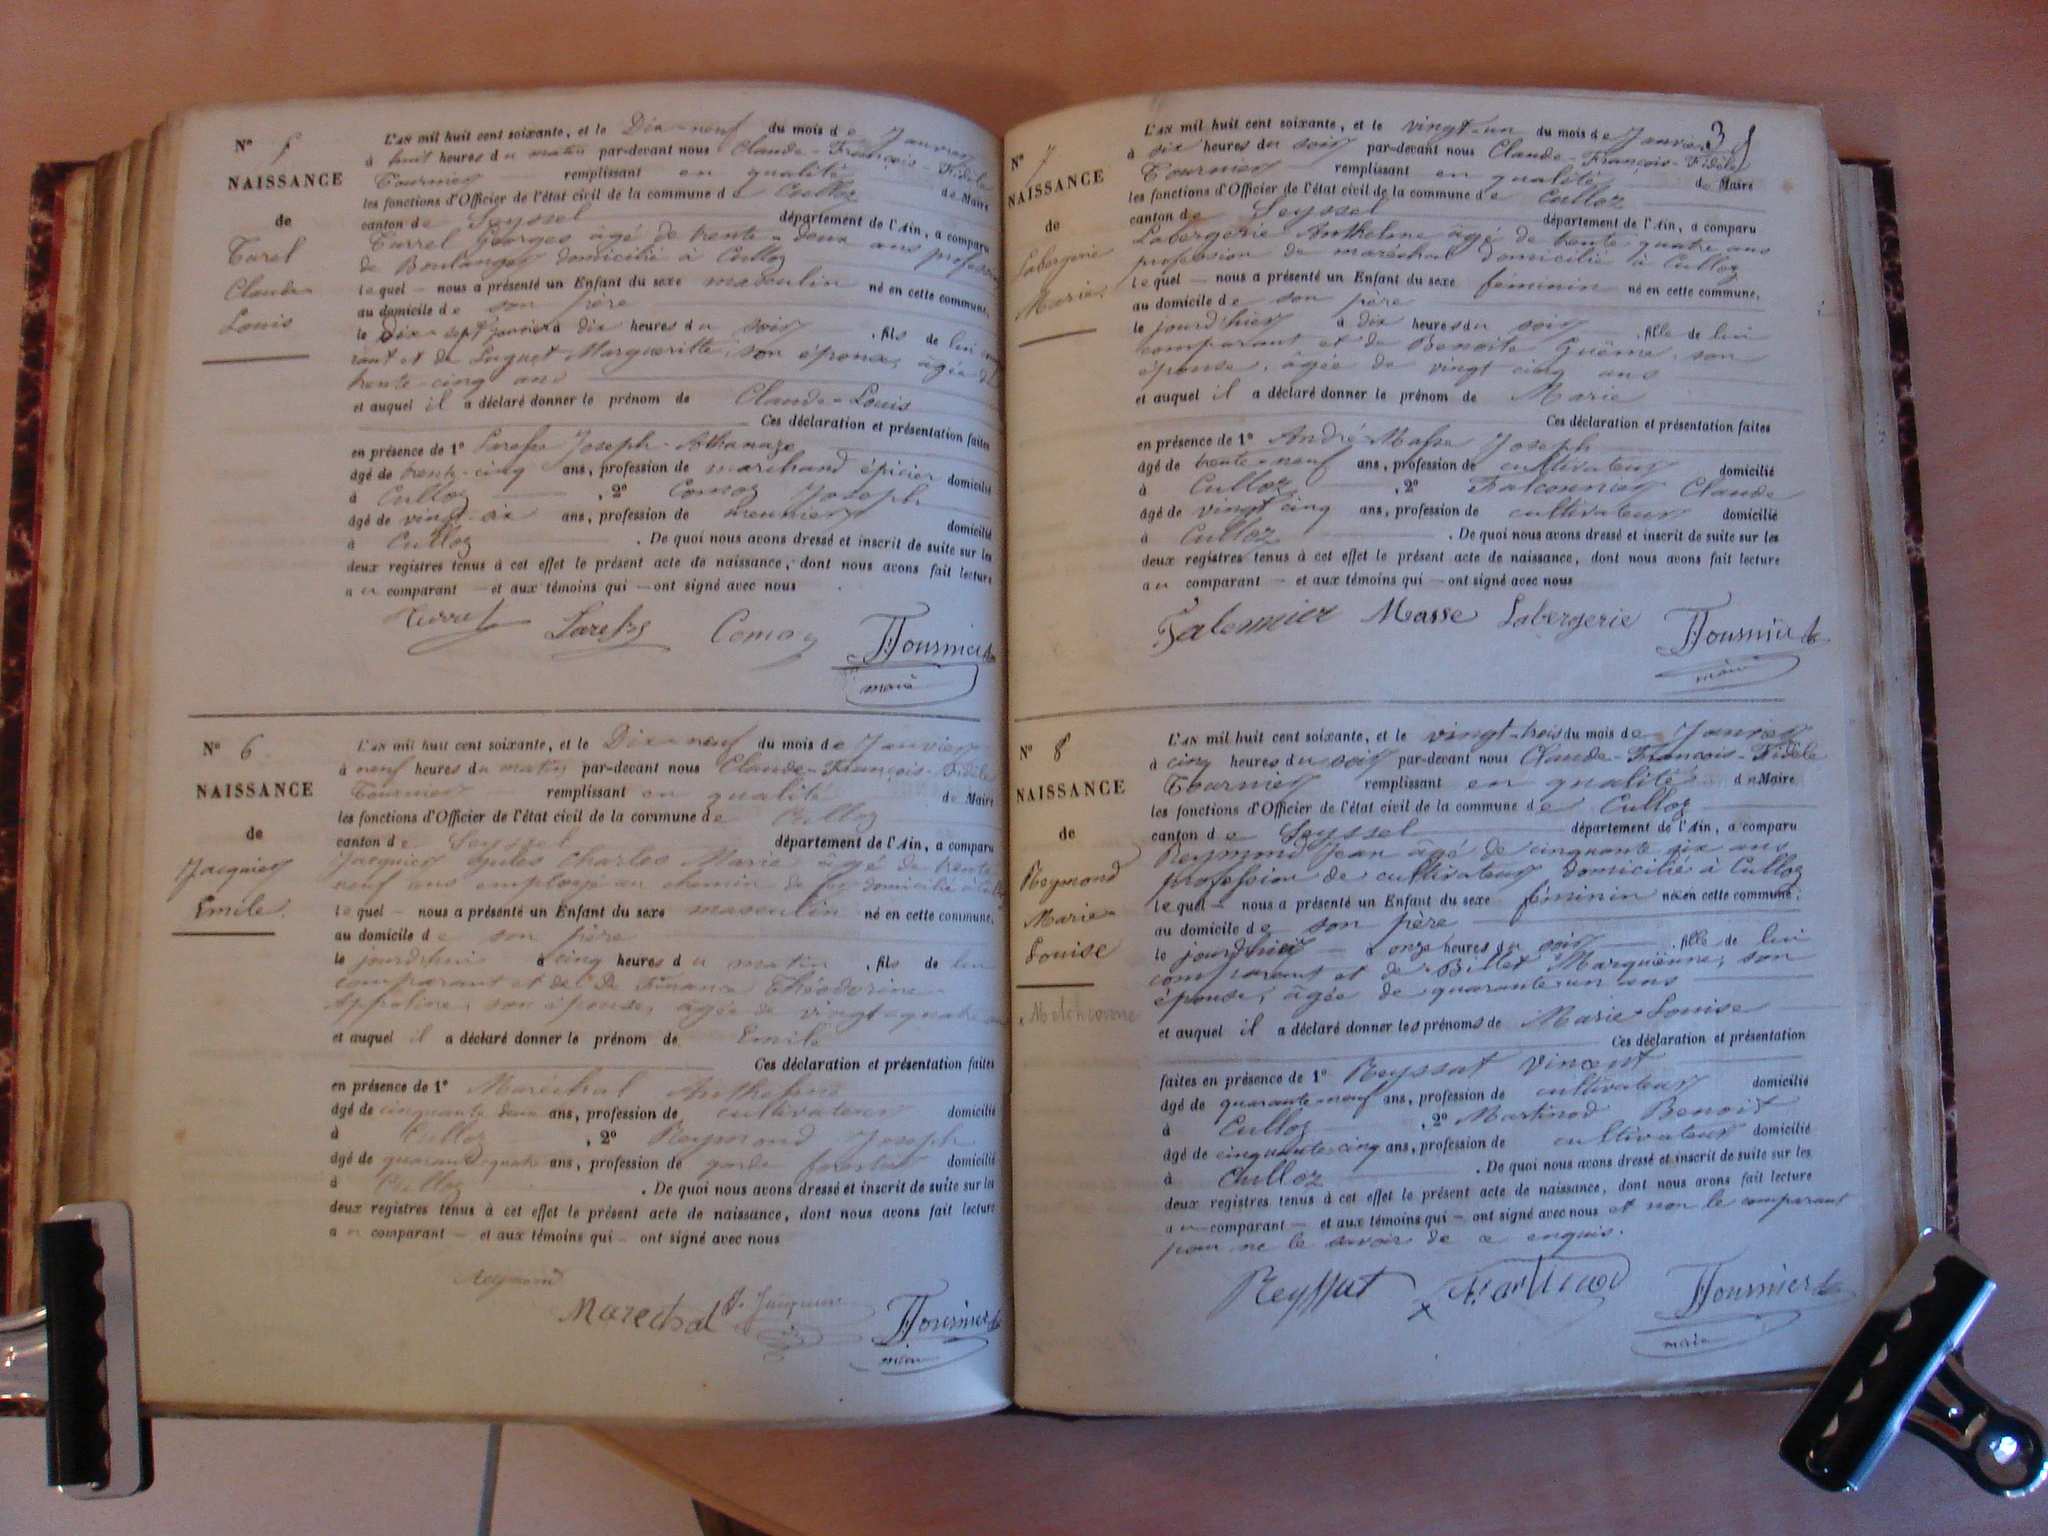 Nº 5
NAISSANCE
de
Turel
Claude
Louis
L'AN mil huit cent soixante, et le Dix-neuf du mois de Janvier
à huit heures du matin par-devant nous Claude-François-Fidèle
Tournier remplissant en qualité de Maire
les fonctions d'Officier de l'état civil de la commune de Culloz
canton de Seyssel département de l'Ain, a comparu
Turrel Georges âgé de trente-deux ans profession
de Boulanger domicilié à Culloz
lequel — nous a présenté un Enfant du sexe masculin né en cette commune,
au domicile de son père
le Dix-sept janvier à dix heures du soir, fils de lui
rant et de Luquet Margueritte, son épouse, âgée de
trente-cinq ans
et auquel il a déclaré donner le prénom de Claude-Louis
Ces déclaration et présentation faites
en présence de 1º Joseph-Athanaze
âgé de trente-cinq ans, profession de marchand épicier domicilié
à Culloz, 2º Comoz Joseph
âgé de vingt-six ans, profession de meunier domicilié
à Culloz. De quoi nous avons dressé et inscrit de suite sur les
deux registres tenus à cet effet le présent acte de naissance, dont nous avons fait lecture
au comparant — et aux témoins qui — ont signé avec nous
Comoz Tournier
maire
Nº 6
NAISSANCE
de
Jacquier
Emile.
L'AN mil huit cent soixante, et le Dix-neuf du mois de Janvier
à neuf heures du matin par-devant nous Claude-François-Fidèle
Tournier remplissant en qualité de Maire
les fonctions d'Officier de l'état civil de la commune de Culloz
canton de Seyssel département de l'Ain, a comparu
Jacquier Jules Charles Marie âgé de trente
neuf ans employé au chemin de fer domicilié à Culloz
lequel — nous a présenté un Enfant du sexe masculin né en cette commune,
au domicile de son père
le jourd'hui à cinq heures du matin, fils de lui
comparant et de De Finance Théodorine
Appoline, son épouse, âgée de vingt-quatre ans
et auquel il a déclaré donner le prénom de Emile
Ces déclaration et présentation faites
en présence de 1º Maréchal Anthelme
âgé de cinquante deux ans, profession de cultivateur domicilié
à Culloz, 2º Reymond Joseph
âgé de quarante-quatre ans, profession de garde forestier domicilié
à Culloz. De quoi nous avons dressé et inscrit de suite sur les
deux registres tenus à cet effet le présent acte de naissance, dont nous avons fait lecture
au comparant — et aux témoins qui — ont signé avec nous
Reymond
Marechal J. Jacquier Tournier
maire
3
Nº 7
NAISSANCE
de
Labergerie
Marie.
L'AN mil huit cent soixante, et le vingt-un du mois de Janvier
à six heures du soir par-devant nous Claude-François-Fidèle
Tournier remplissant en qualité de Maire
les fonctions d'Officier de l'état civil de la commune de Culloz
canton de Seyssel département de l'Ain, a comparu
Labergerie Anthelme âgé de trente quatre ans
profession de maréchal domicilié à Culloz
lequel — nous a présenté un Enfant du sexe féminin né en cette commune,
au domicile de son père
le jourd'hier à dix heures du soir, fille de lui
comparant et de Benoite Guême, son
épouse, âgée de vingt cinq ans
et auquel il a déclaré donner le prénom de Marie
Ces déclaration et présentation faites
en présence de 1º André-Masse Joseph
âgé de trente-neuf ans, profession de cultivateur domicilié
à Culloz, 2º Falconnier Claude
âgé de vingt cinq ans, profession de cultivateur domicilié
à Culloz. De quoi nous avons dressé et inscrit de suite sur les
deux registres tenus à cet effet le présent acte de naissance, dont nous avons fait lecture
au comparant — et aux témoins qui — ont signé avec nous
Masse Labergerie Tournier
maire
Nº 8
NAISSANCE
de
Reymond
Marie-
Louise
L'AN mil huit cent soixante, et le vingt-trois du mois de Janvier
à cinq heures du soir par-devant nous Claude-François-Fidèle
Tournier remplissant en qualité de Maire
les fonctions d'Officier de l'état civil de la commune de Culloz
canton de Seyssel département de l'Ain, a comparu
Reymond Jean âgé de cinquante six ans
profession de cultivateur domicilié à Culloz
lequel — nous a présenté un Enfant du sexe féminin né en cette commune,
au domicile de son père
le jourd'hier — à onze heures du soir, fille de lui
comparant et de Billet Marguienne, son
épouse, âgée de quarante-un ans
et auquel il a déclaré donner les prénoms de Marie-Louise
Ces déclaration et présentation
faites en présence de 1º Reyssat Vincent
âgé de quarante-neuf ans, profession de cultivateur domicilié
à Culloz, 2º Martinod Benoit
âgé de cinquante cinq ans, profession de cultivateur domicilié
à Culloz. De quoi nous avons dressé et inscrit de suite sur les
deux registres tenus à cet effet le présent acte de naissance, dont nous avons fait lecture
au comparant — et aux témoins qui — ont signé avec nous et non le comparant
pour ne le savoir de ce enquis.
Reyssat Martinod Tournier
maire